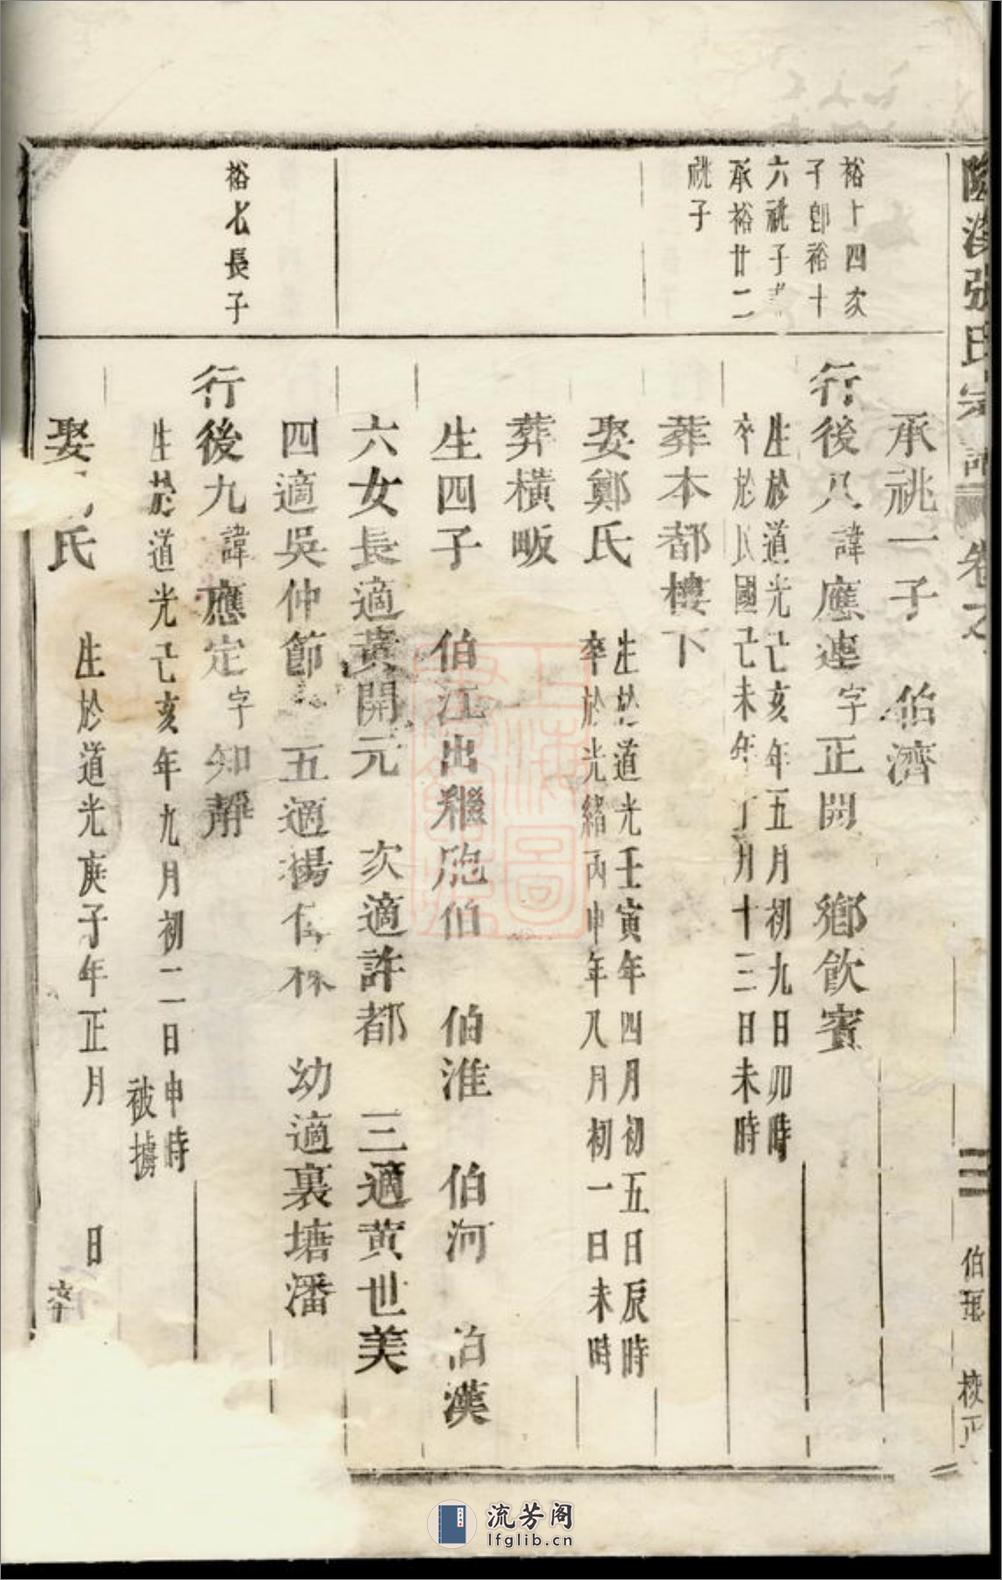 張氏宗譜
卷之
三
伯
校正
裕十四次
子卽裕十
六祧子
承裕廿二
祧子
承祧一子 伯濟
行後八諱應連字正開 鄉飲賓
生於道光己亥年五月初九日卯時
卒於民國己未年丁月十三日未時
葬本都樓下
娶鄭氏
生於道光壬寅年四月初五日辰時
卒於光緒丙申年八月初一日未時
葬橫畈
生四子 伯江出繼胞伯 伯淮 伯河 伯漢
六女長適黃開元 次適許都 三適黃世美
四適吳仲節 五適楊 幼適裏塘潘
裕尣長子
行後九諱應定字知靜
生於道光己亥年九月初二日申時
被擄
娶 氏
生於道光庚子年正月 日
流芳阁
lfglib.cn